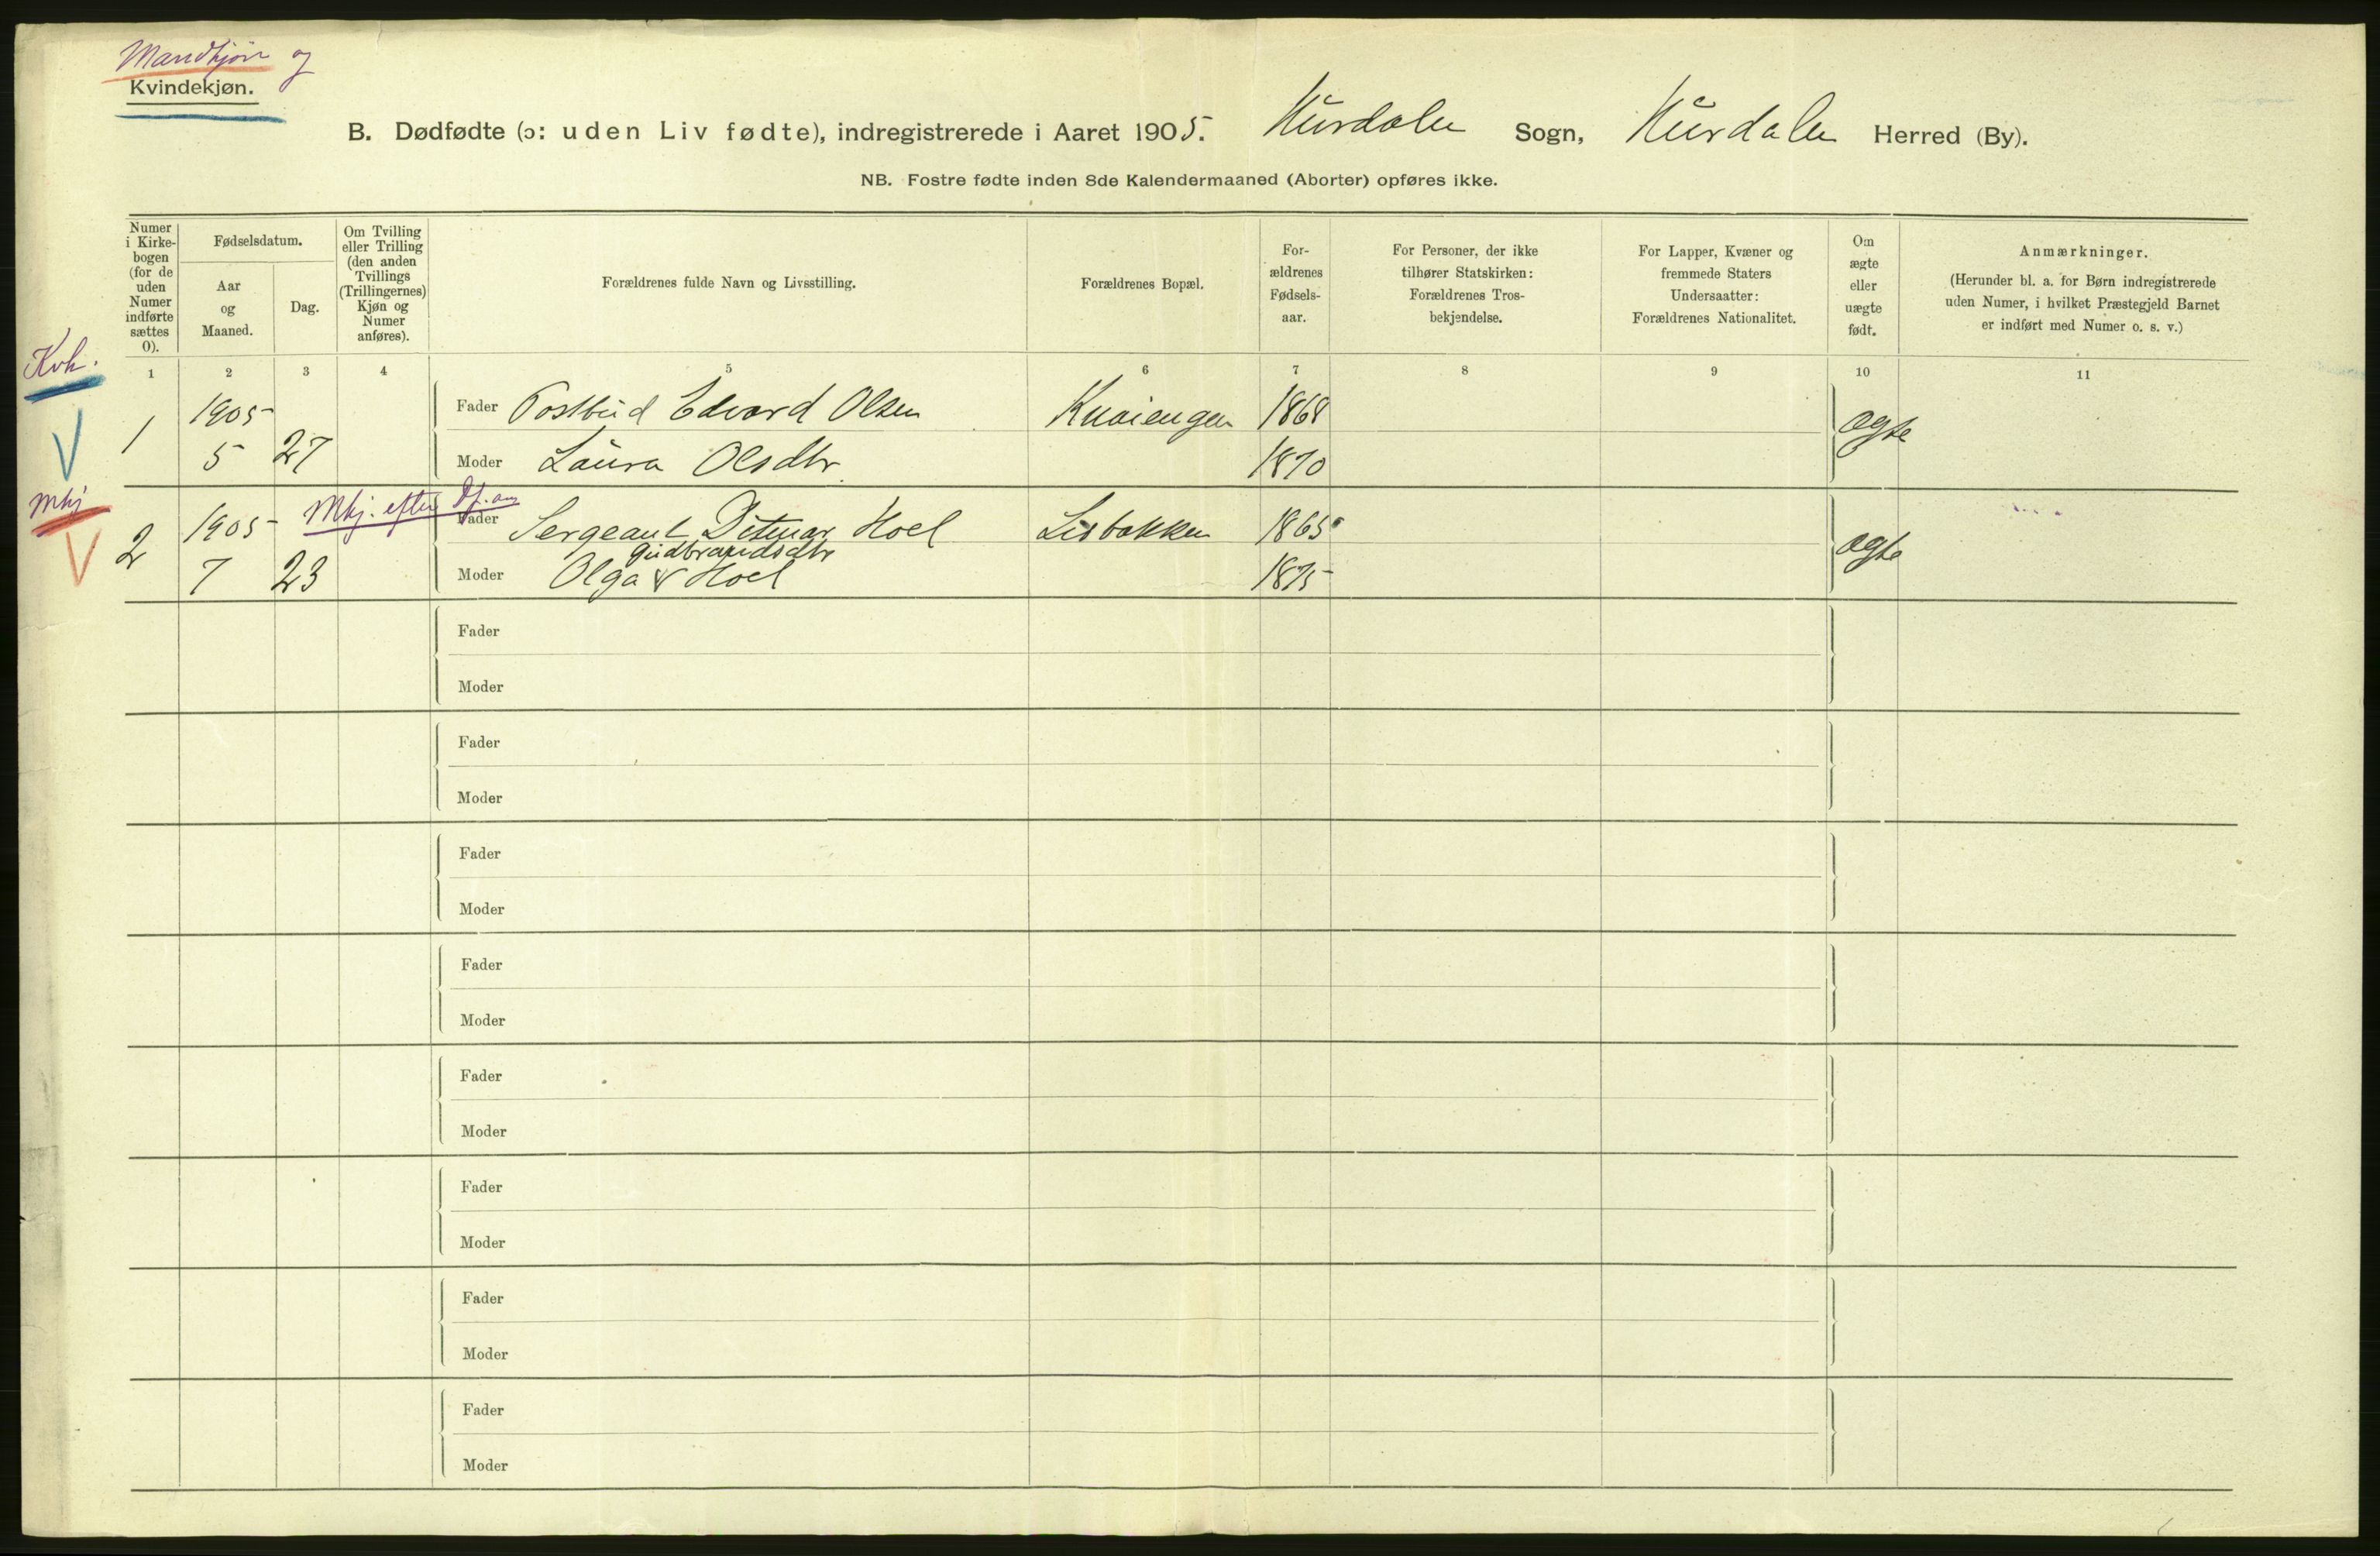 Mandkjøn og
Kvindekjøn.
B. Dødfødte (ɔ: uden Liv fødte), indregistrerede i Aaret 1905. Hurdalen Sogn, Hurdalen Herred (By).
NB. Fostre fødte inden 8de Kalendermaaned (Aborter) opføres ikke.
Numer i Kirkebogen (for de uden Numer indførte sættes 0).
Fødselsdatum.
Aar og Maaned.
Dag.
Om Tvilling eller Trilling (den anden Tvillings (Trillingernes) Kjøn og Numer anføres).
Forældrenes fulde Navn og Livsstilling.
Forældrenes Bopæl.
Forældrenes Fødselsaar.
For Personer, der ikke tilhører Statskirken: Forældrenes Trosbekjendelse.
For Lapper, Kvæner og fremmede Staters Undersaatter: Forældrenes Nationalitet.
Om ægte eller uægte født.
Anmærkninger.
(Herunder bl. a. for Børn indregistrerede uden Numer, i hvilket Præstegjeld Barnet er indført med Numer o. s. v.)
1 2 3 4 5 6 7 8 9 10 11
Kvk.
1 1905 Fader Postbud Edvard Olsen 1868 ægte
5 27 Moder Laura Olsdtr. 1870
Mkj
Mkj. efter Df. an
2 1905 Fader Sergeant Ditmar Hoel Lisbakken 1865 ægte
Gudbrandsdtr
7 23 Moder Olga Hoel 1875
Fader
Moder
Fader
Moder
Fader
Moder
Fader
Moder
Fader
Moder
Fader
Moder
Fader
Moder
Fader
Moder